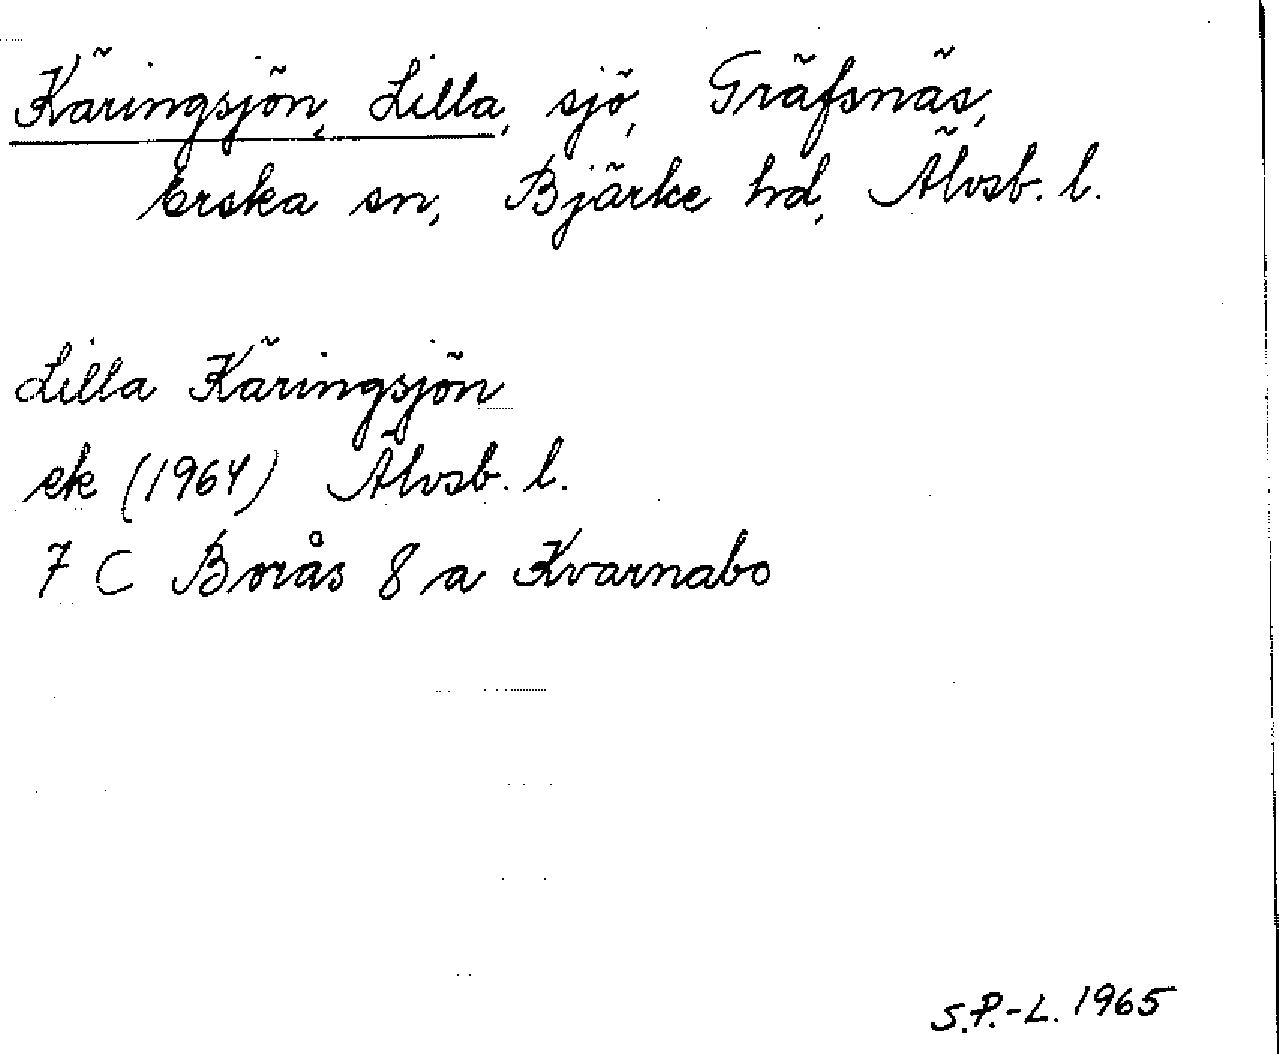 Käringsjön, Lilla, sjö, Gräfsnäs,
Erska sn, Bjärke hd, Älvsb. l.
Lilla Käringsjön
ek (1964) Älvsb. l.
7 C Borås 8 a Kvarnabo
S.P.-L. 1965